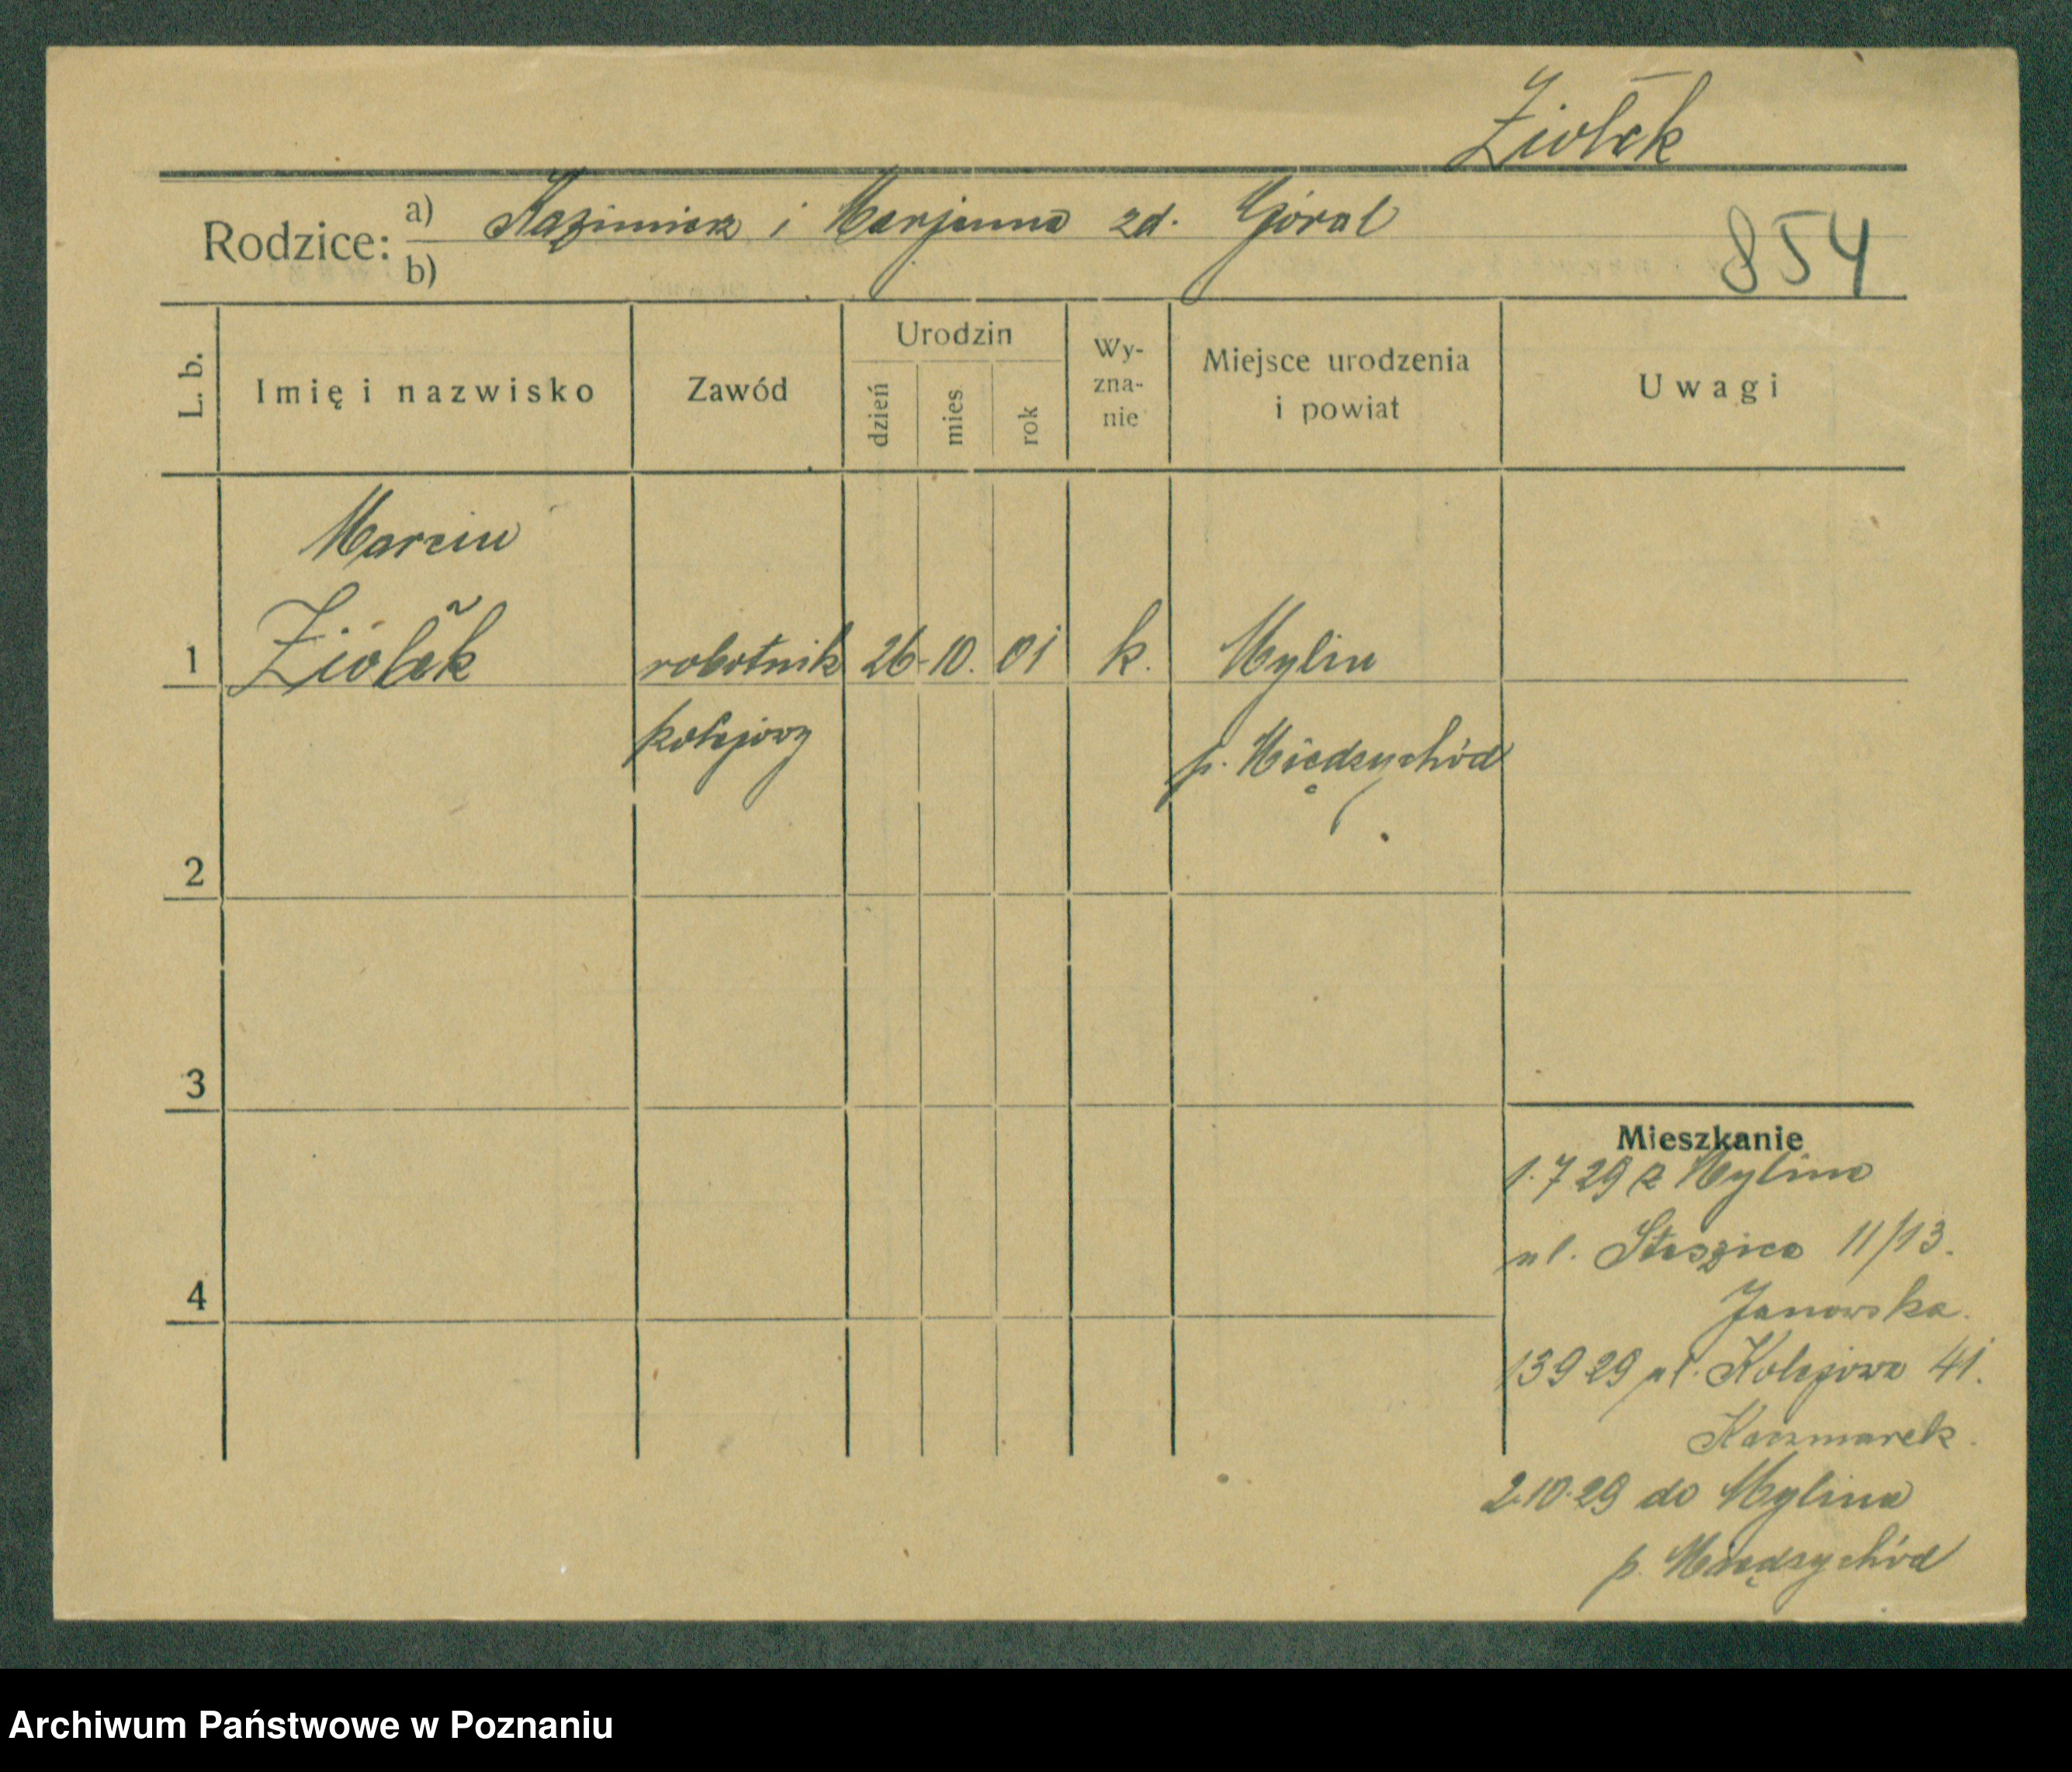 Ziołek
Rodzice: a) Kazimierz i Marjanna zd. Góral
b)
854
L. b. Imię i nazwisko Zawód Urodzin dzień mies rok Wy-zna-nie Miejsce urodzenia i powiat Uwagi
Marcin
1 Ziołek robotnik 26. 10. 01 k. Mylin
kolejowy p. Międzychód
2
3
Mieszkanie
1.7 29 z Mylina
ul. Staszica 11/13.
4 Janowska.
13 9 29 ul. Kolejowa 41.
Kaczmarek.
2.10.29 do Mylina
p. Międzychód
Archiwum Państwowe w Poznaniu